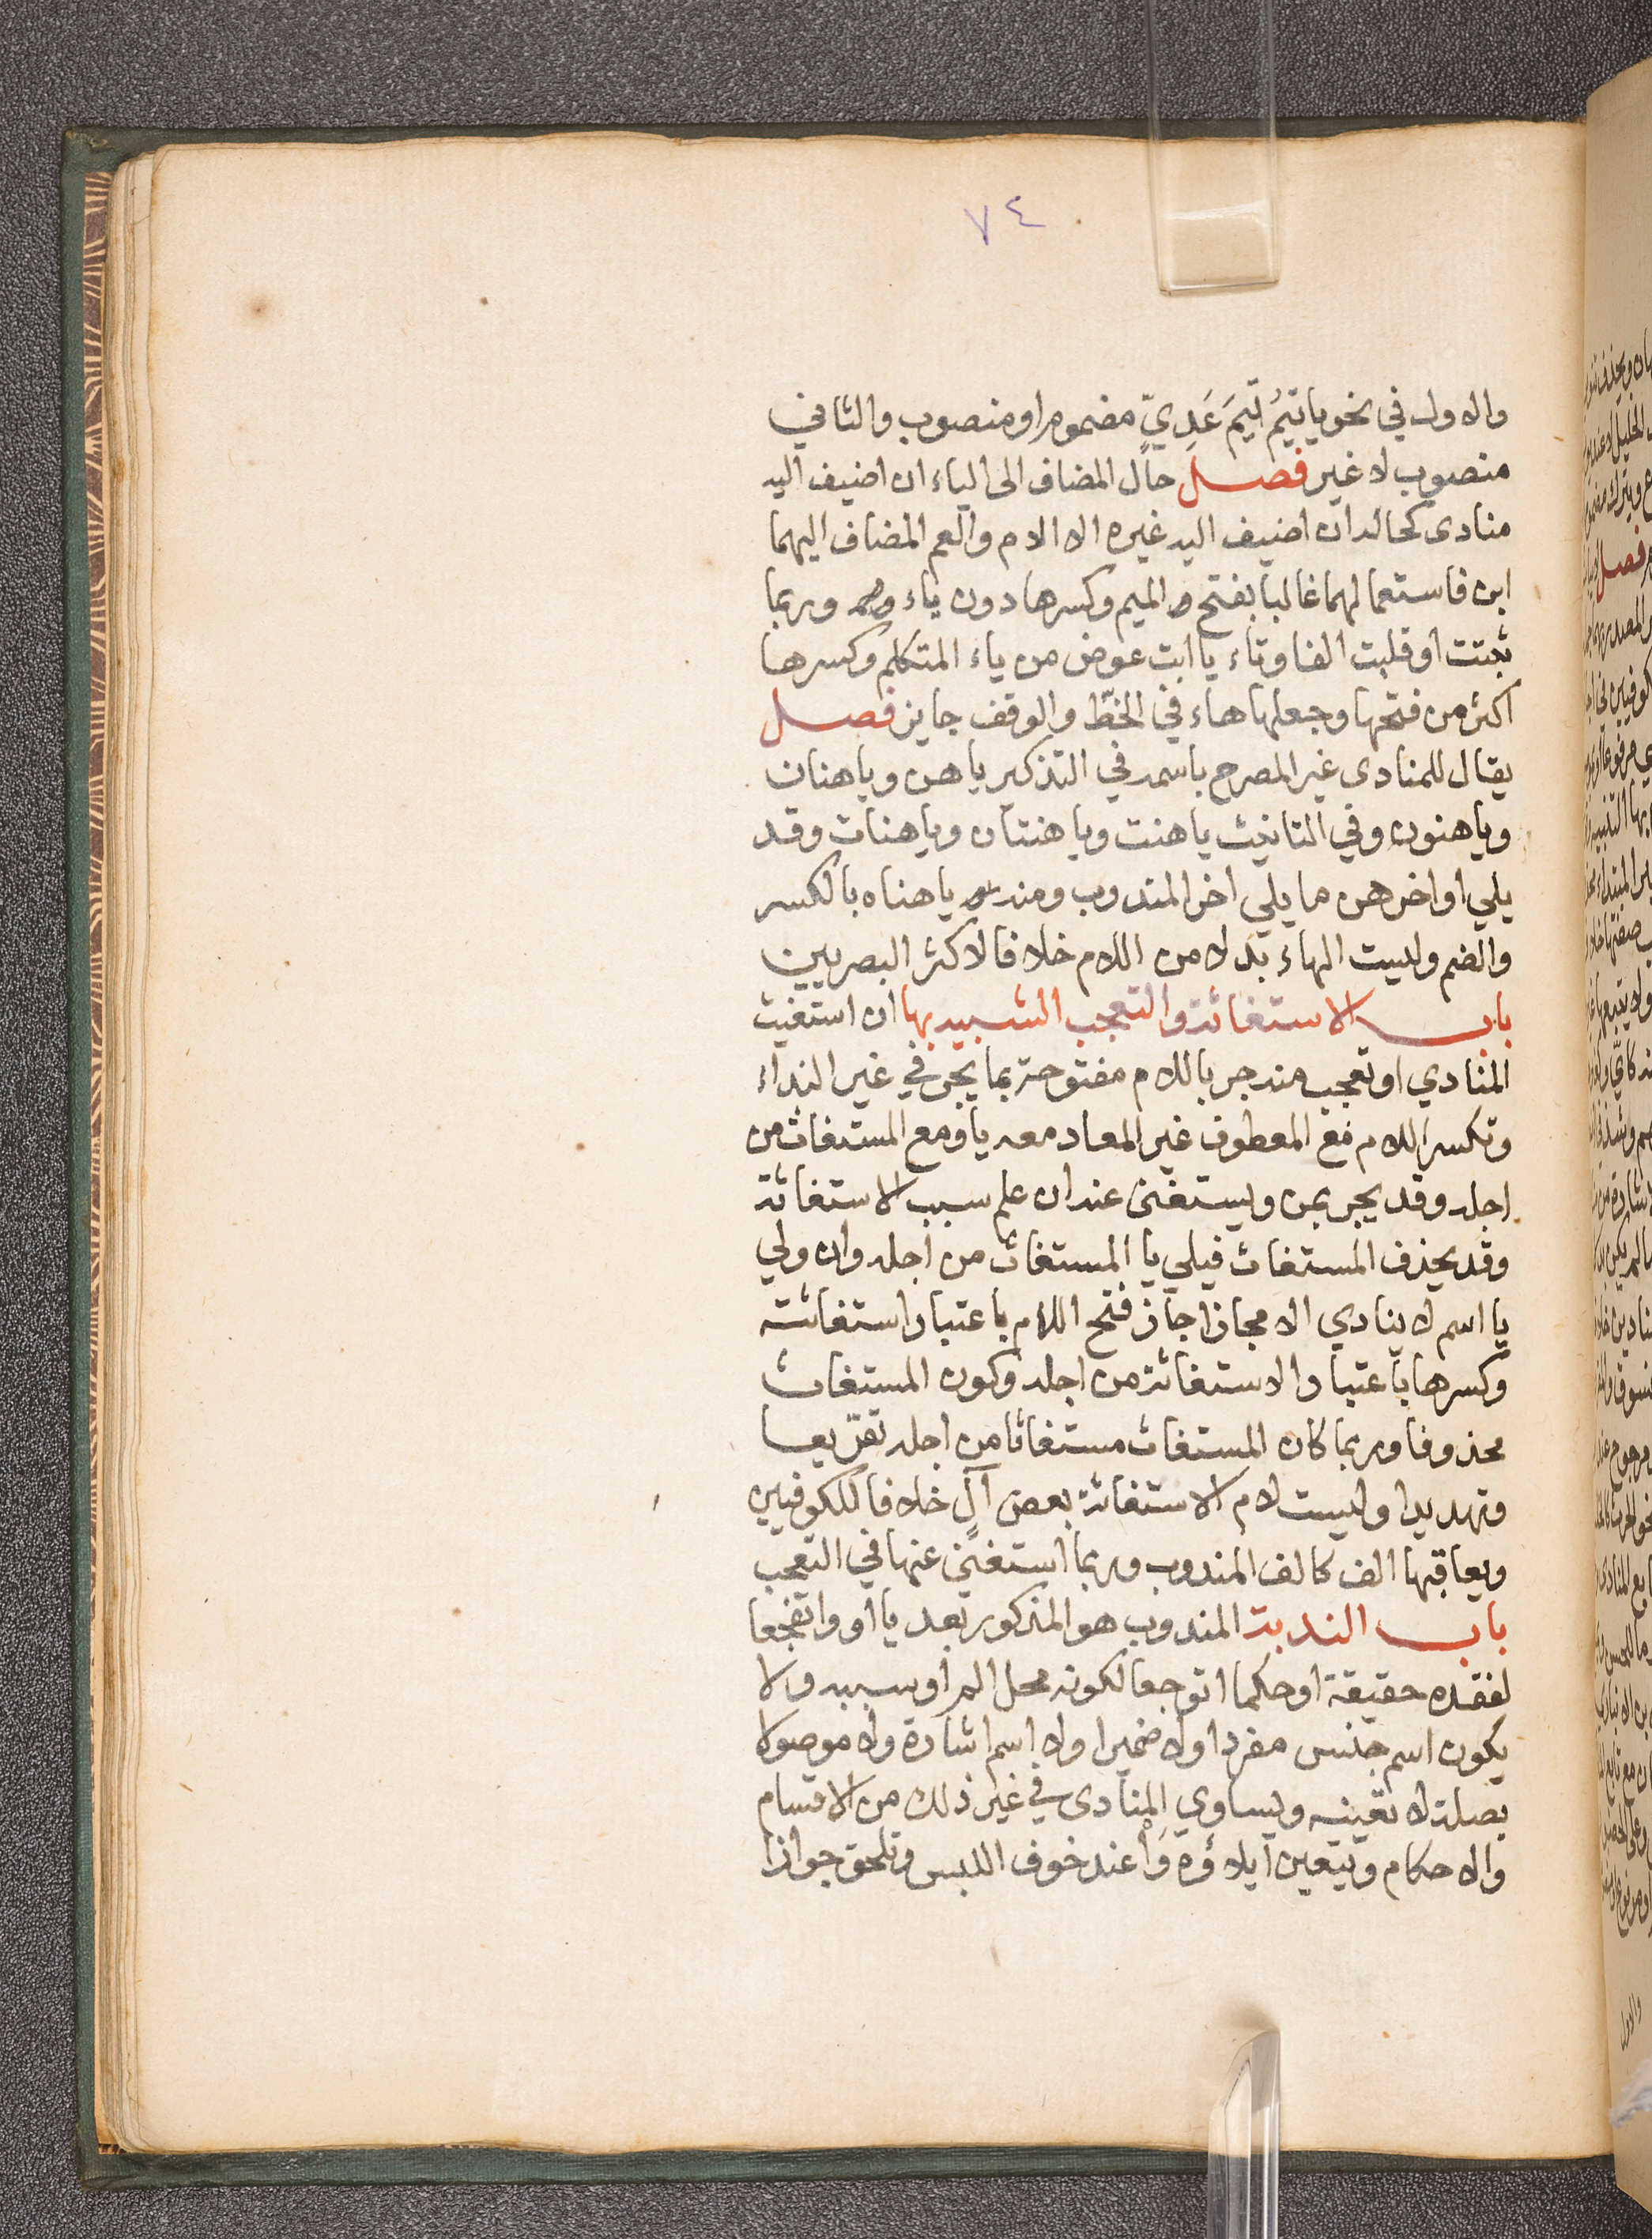 ٧٤
والاول في نحو يا تَيْمُ تَيْمَ عَدِيٍّ مضموم او منصوب والثاني
منصوب لا غير فصل حال المضاف الى الياء ان اضيف اليه
منادى كحاله ان اضيف اليه غيره الا الام والعم المضاف اليهما
ابن فاستعمالهما غالبا بفتح الميم وكسرها دون ياء وربما
ثبتت او قلبت الفا وتاء يا ابت عوض من ياء المتكلم وكسرها
اكثر من فتحها وجعلها هاء في الخطّ والوقف جايز فصل
يقال للمنادى غير المصرح باسمه في التذكير يا هن ويا هنان
ويا هنون وفي التانيث يا هنت ويا هنتان ويا هنات وقد
يلي اواخرهن ما يلي اخر المندوب ومنه يا هناه بالكسر
والضم وليست الهاء بدلا من اللام خلافا لاكثر البصريين
باب الاستغاثة والتعجب الشبيه بها ان استغيث
المنادي او تعجب منه جر باللام مفتوحة بما يجر في غير النداء
وتكسر اللام مع المعطوف غير المعاد معه يا ومع المستغاث من
اجله وقد يجر بمن ويستغنى عنه ان علم سبب الاستغاثة
وقد يحذف المستغاث فيلي يا المستغاث من اجله وان ولي
يا اسم لا ينادي الا مجازا جاز فتح اللام باعتبار استغاثته
وكسرها باعتبار الاستغاثة من اجله وكون المستغاث
محذوفا وربما كان المستغاث مستغاثا من اجله تقريعا
وتهديدا وليست لام الاستغاثة بعض آلٍ خلافا للكوفيين
ويعاقبها الف كالف المندوب وربما استغنى عنها في التعجب
باب الندبة المندوب هو المذكور بعد يا او وا تفجعا
لفقده حقيقة او حكما او توجعا لكونه محل الم او سببه ولا
يكون اسم جنس مفردا ولا ضميرا ولا اسم اشارة ولا موصولا
بصلة لا تعينه ويساوي المنادى في غير ذلك من الاقسام
والاحكام ويتعين ايلاؤه وَاْ عند خوف اللبس وتلحق جوازا